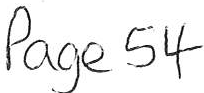 Page 54